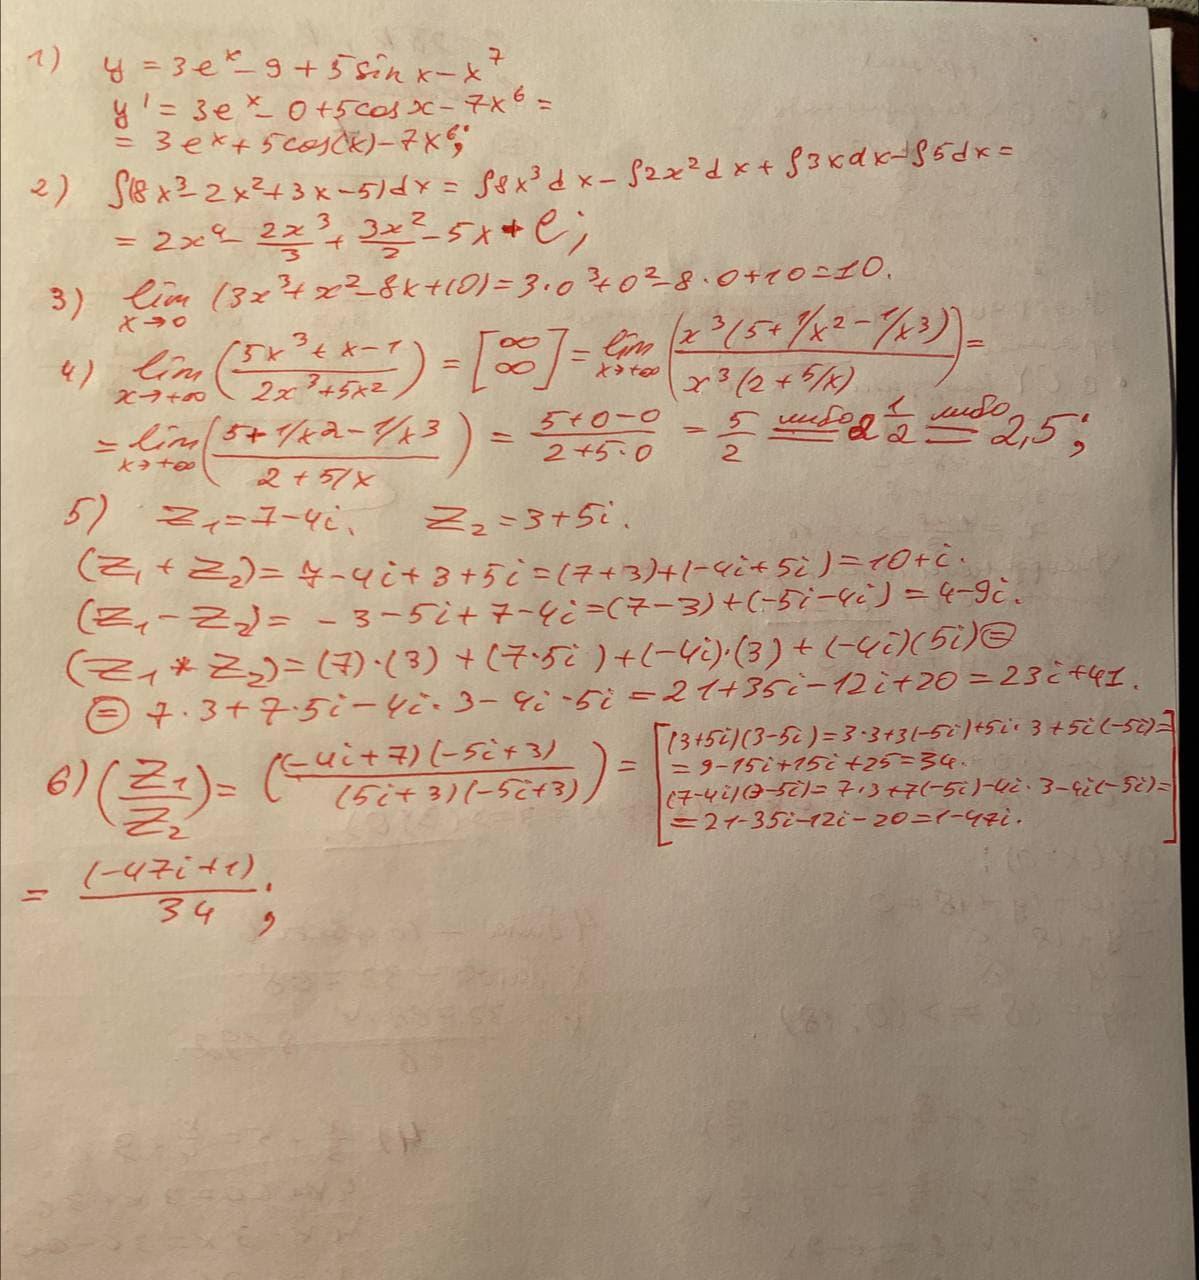 1) y = 3eˣ - 9 + 5 sin x - x⁷
y' = 3eˣ - 0 + 5cos x - 7x⁶ =
= 3eˣ + 5cos(x) - 7x⁶;
2) ∫(8x³ - 2x² + 3x - 5)dx = ∫8x³dx - ∫2x²dx + ∫3xdx - ∫5dx =
= 2x⁴ - 2x³/3 + 3x²/2 - 5x + C;
3) lim x→0 (3x³ + x² - 8x + 10) = 3·0³ + 0² - 8·0 + 10 = 10.
4) lim x→+∞ ((5x³ + x - 1)/(2x³ + 5x²)) = [∞/∞] = lim x→+∞ (x³(5 + 1/x² - 1/x³)/x³(2 + 5/x)) =
= lim x→+∞ ((5 + 1/x2 - 1/x3)/(2 + 5/x)) = (5 + 0 - 0)/(2 + 5·0) = 5/2 либо = 2 1/2 либо = 2,5;
5) Z₁ = 7 - 4i. Z₂ = 3 + 5i.
(Z₁ + Z₂) = 7 - 4i + 3 + 5i = (7 + 3) + (-4i + 5i) = 10 + i.
(Z₁ - Z₂) = - 3 - 5i + 7 - 4i = (7 - 3) + (-5i - 4i) = 4 - 9i.
(Z₁ * Z₂) = (7)·(3) + (7·5i) + (-4i)·(3) + (-4i)(5i) =
= 7·3 + 7·5i - 4i·3 - 4i·5i = 21 + 35i - 12i + 20 = 23i + 41.
6) (Z₁/Z₂) = ((-4i + 7)(-5i + 3)/(5i + 3)(-5i + 3)) =
[(3 + 5i)(3 - 5i) = 3·3 + 3(-5i) + 5i·3 + 5i(-5i) =
= 9 - 15i + 15i + 25 = 34.
(7 - 4i)(3 - 5i) = 7·3 + 7(-5i) - 4i·3 - 4i(-5i) =
= 21 - 35i - 12i - 20 = 1 - 47i.]
= (-47i + 1)/34;